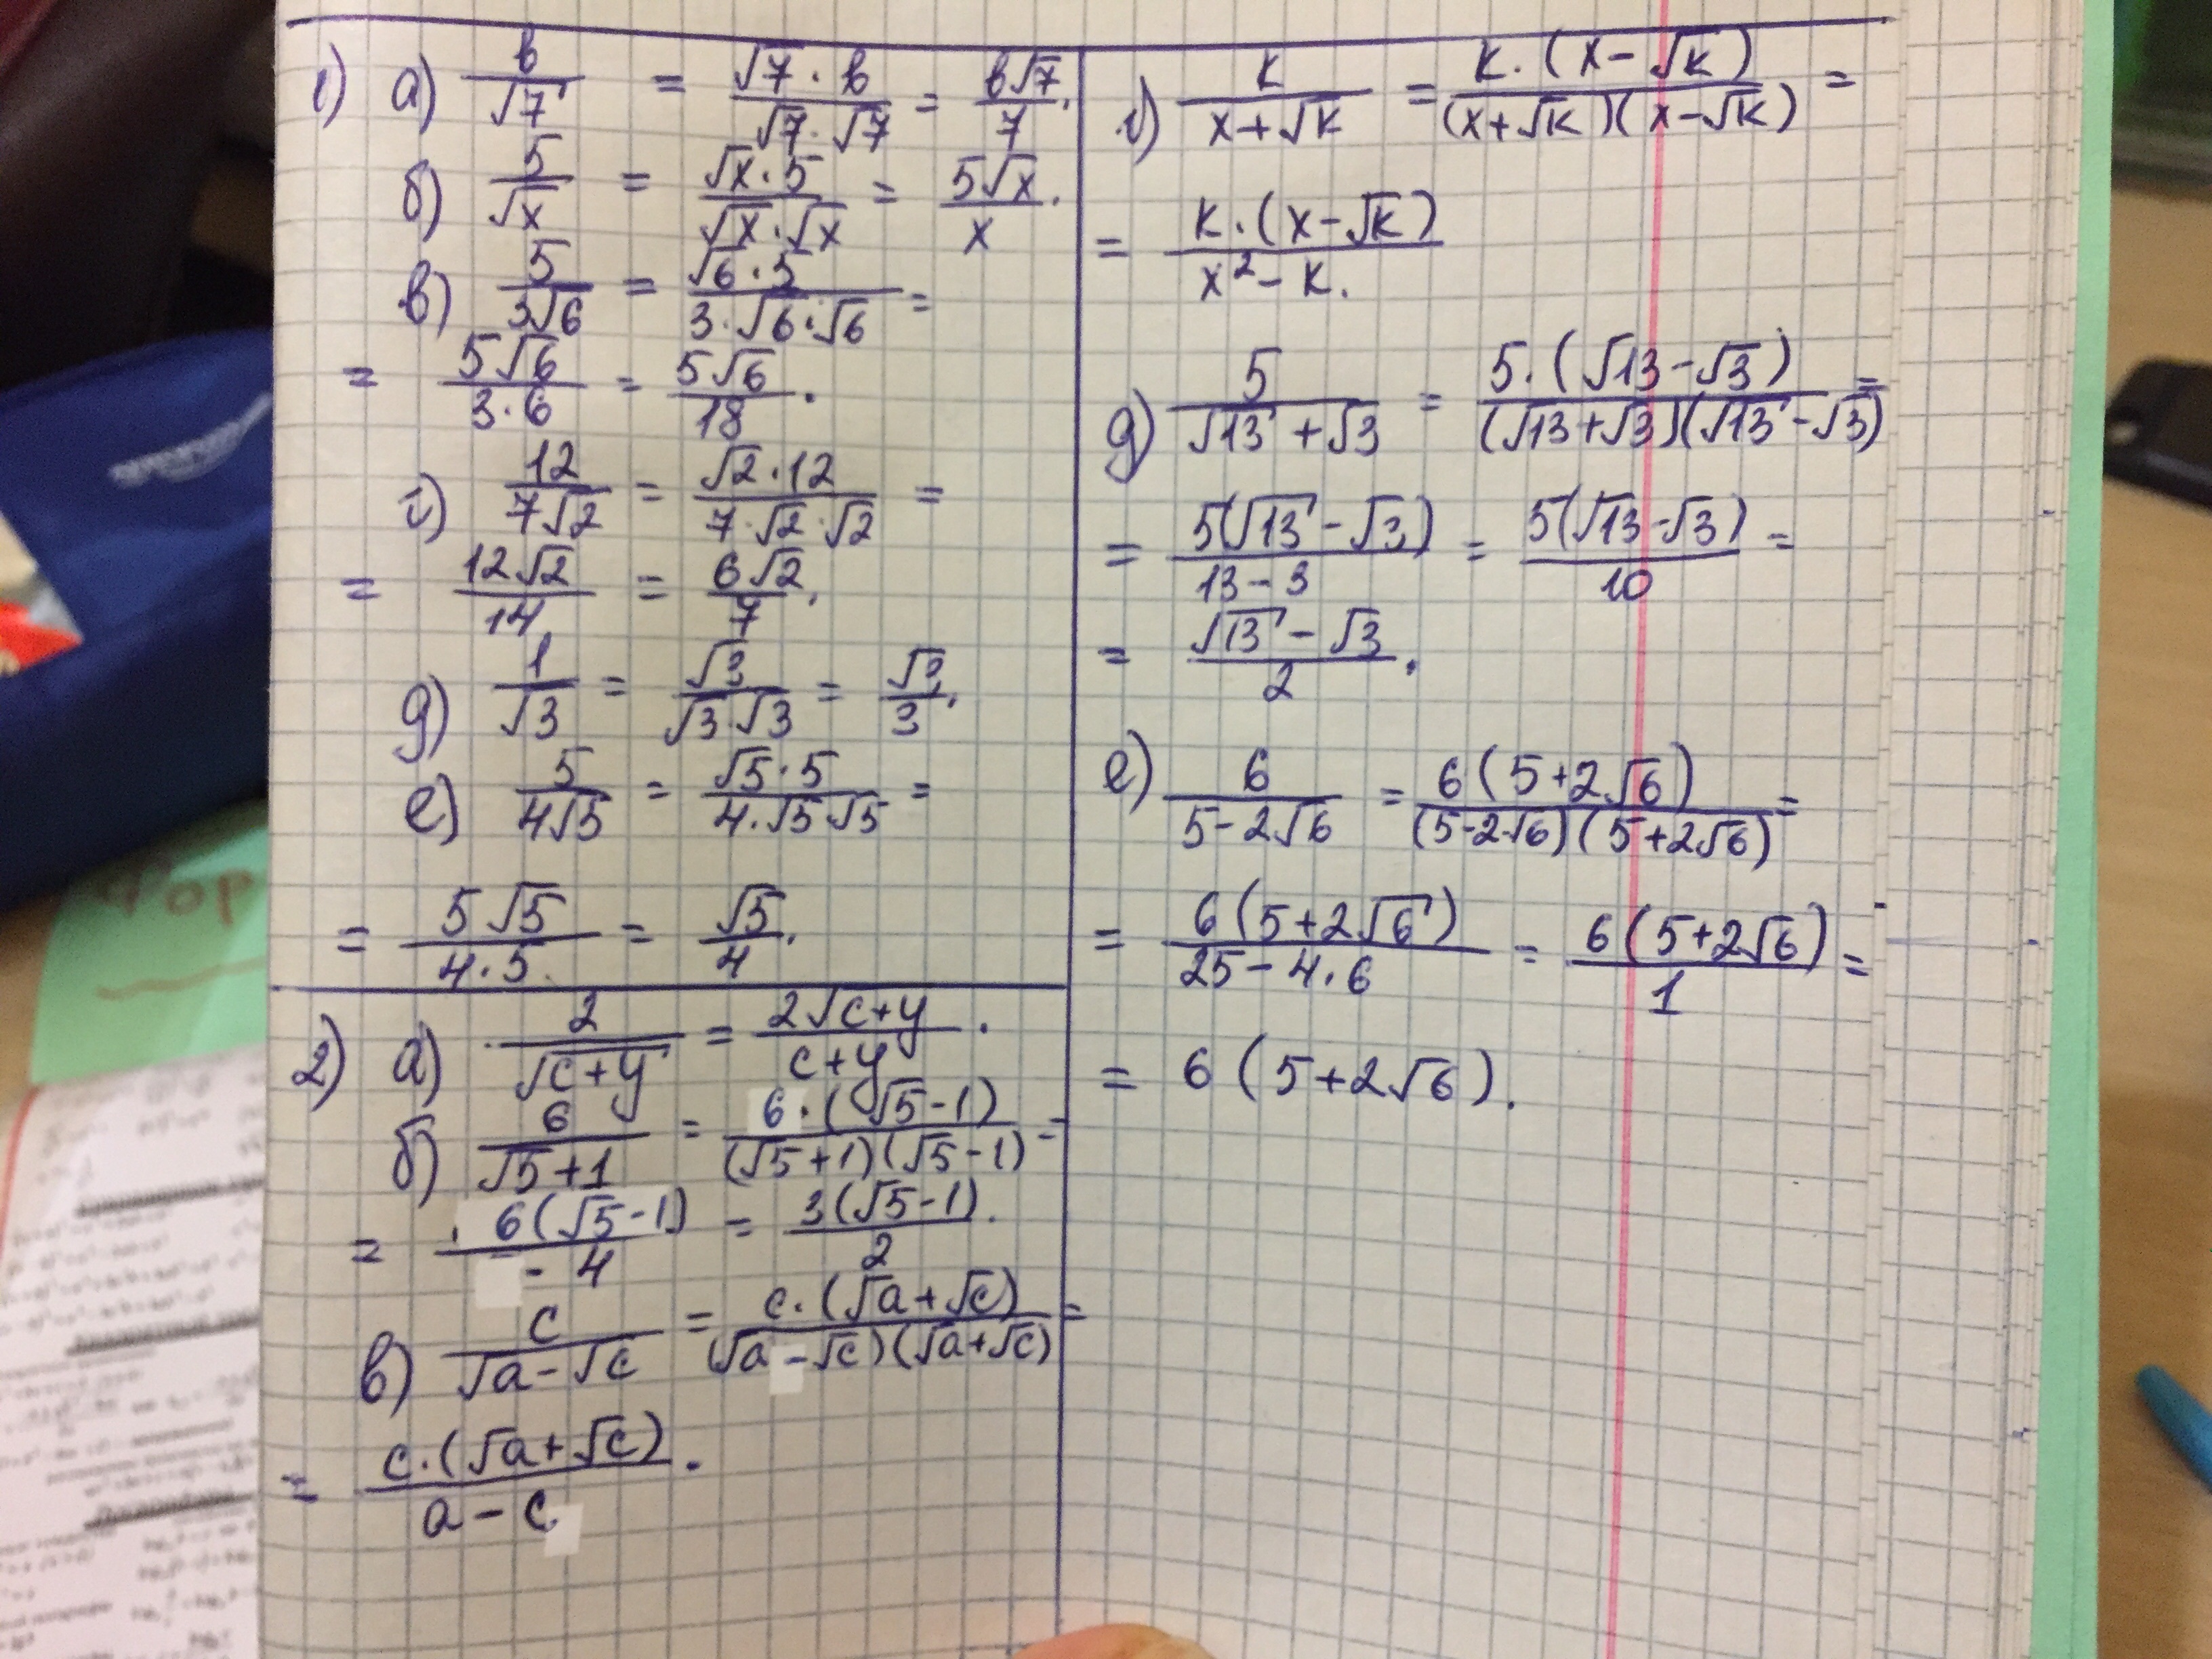 1) а) в/√7 = √7·в/√7·√7 = в√7/7.
б) 5/√x = √x·5/√x·√x = 5√x/x.
в) 5/3√6 = √6·5/3·√6·√6 =
= 5√6/3·6 = 5√6/18.
г) 12/7√2 = √2·12/7·√2·√2 =
= 12√2/14 = 6√2/7.
д) 1/√3 = √3/√3·√3 = √3/3.
е) 5/4√5 = √5·5/4·√5·√5 =
= 5√5/4·5 = √5/4.
2) а) 2/√c+y = 2√c+y/c+y.
б) 6/√5+1 = 6·(√5-1)/(√5+1)(√5-1) =
= 6(√5-1)/4 = 3(√5-1)/2.
в) c/√a-√c = c·(√a+√c)/(√a-√c)(√a+√c) =
= c·(√a+√c)/a-c.
г) k/x+√k = k·(x-√k)/(x+√k)(x-√k) =
= k·(x-√k)/x²-k.
д) 5/√13+√3 = 5·(√13-√3)/(√13+√3)(√13-√3) =
= 5(√13-√3)/13-3 = 5(√13-√3)/10 =
= √13-√3/2.
е) 6/5-2√6 = 6(5+2√6)/(5-2√6)(5+2√6) =
= 6(5+2√6)/25-4·6 = 6(5+2√6)/1 =
= 6(5+2√6).